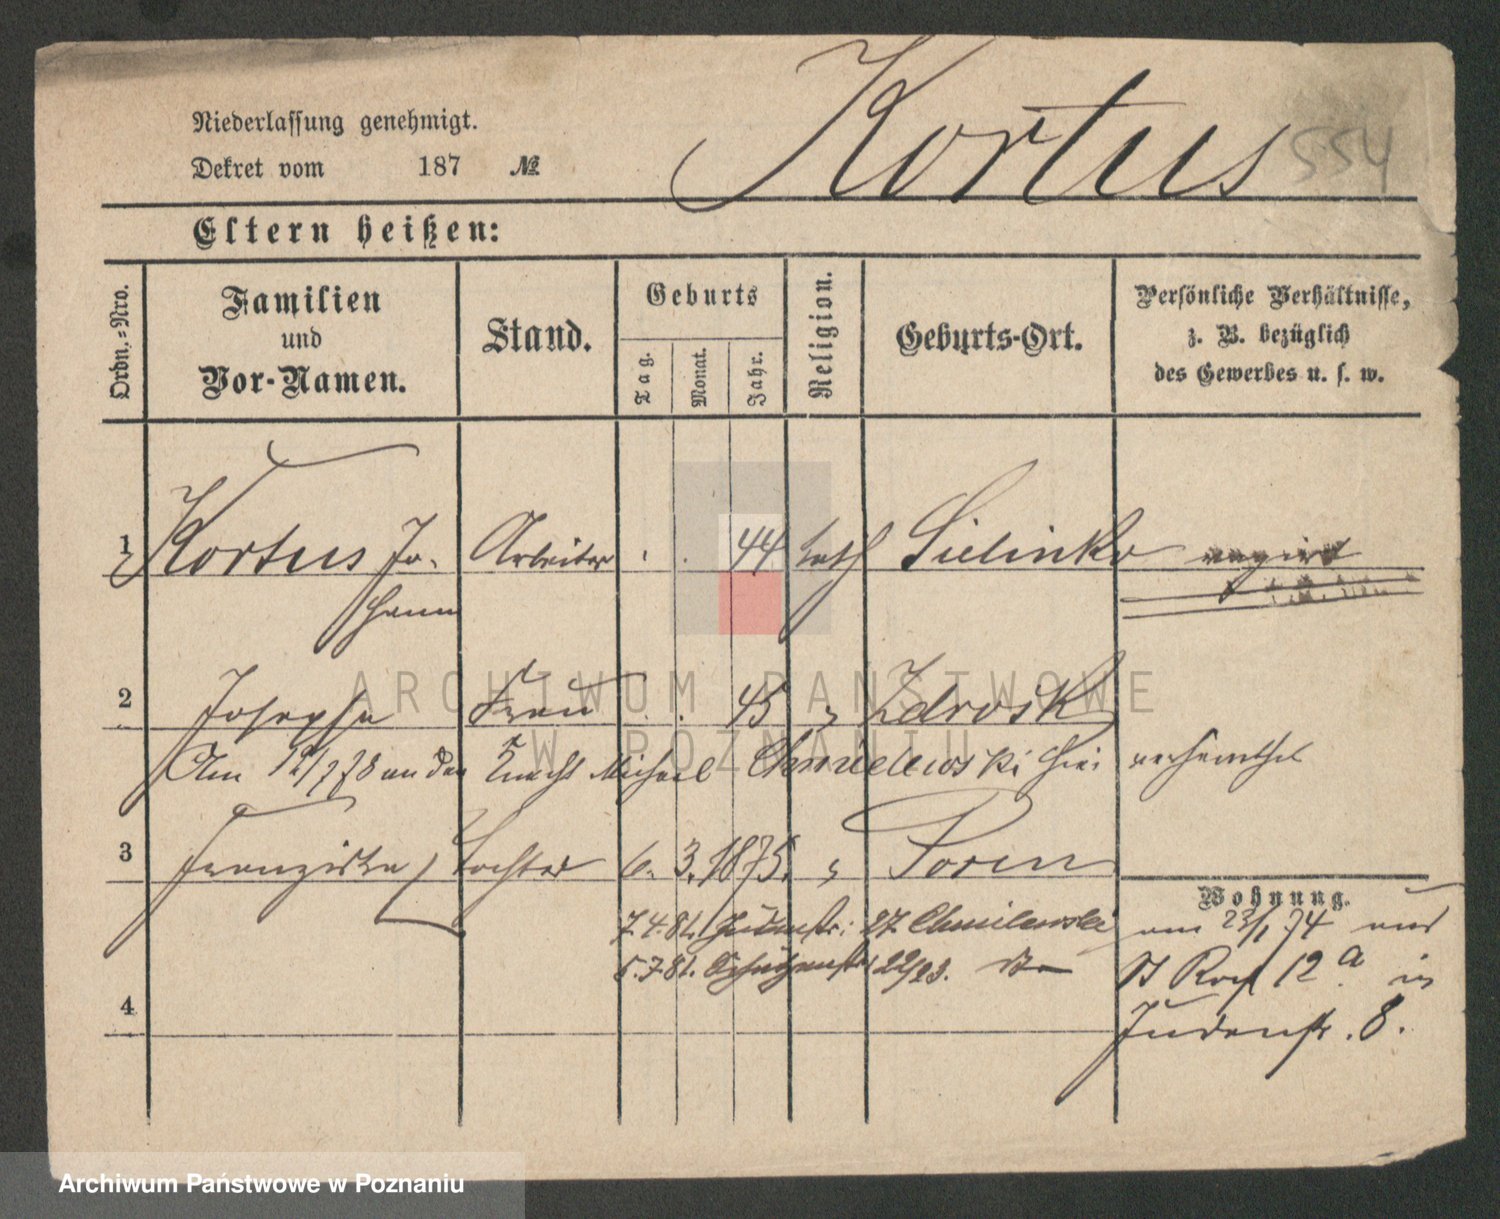 Niederlassung genehmigt.
Dekret vom 187 №
Kortus 554
Eltern heißen:
Ordn.-Nro.
Familien
und
Vor-Namen.
Stand.
Geburts
Tag.
Monat.
Jahr.
Religion.
Geburts-Ort.
Persönliche Verhältnisse,
z. B. bezüglich
des Gewerbes u. s. w.
1 Kortus Jo- Arbeiter . . 44 kath Sielinko
hann
2 Josepha Frau . . 45 " Zdrosk
Am 12/7 78 an den Knecht Michael Chmielewski hier verheirathet
3 Franziska Tochter 6. 3. 1875. " Posen
Wohnung.
7.4.81. Judenstr: 27 Chmilewski am 23/1 74 aus
5.7.81. Schützenstr 22/23. St Roch 12a. in
4 Judenstr. 8.
ARCHIWUM PAŃSTWOWE
W POZNANIU
Archiwum Państwowe w Poznaniu